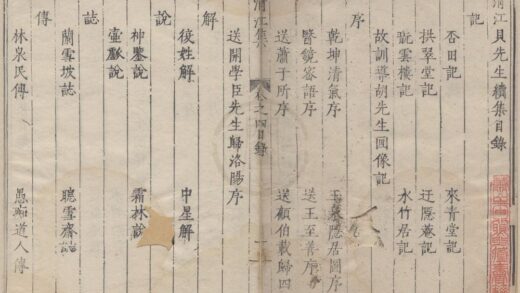 清江貝先生續集目錄
記
杏田記 來青堂記
拱翠堂記 迂隱菴記
雲樓記 水竹居記
故訓導胡先生圖像記
序
乾坤清氣序 隱居圖序
醫鏡密語序 送王至善序
送蕭子所序 送顧伯載歸四
清江集 卷之四目錄
送開學臣先生歸洛陽序
解
復姓解 中星解
說
神鑒說 霜林說
說
誌
蘭雪坡誌 聽雪齋誌
傳
林泉民傳 愚道人傳